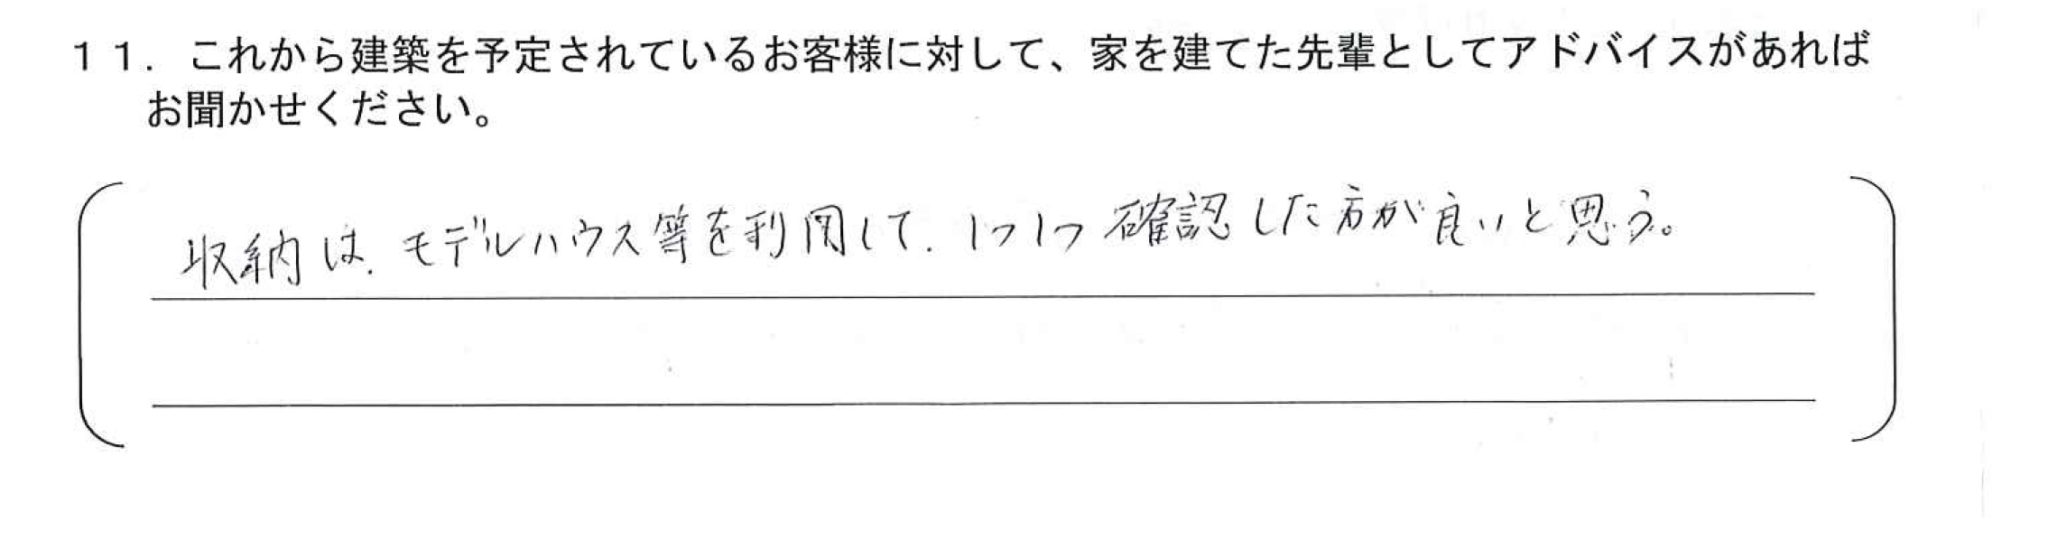 １１．これから建築を予定されているお客様に対して、家を建てた先輩としてアドバイスがあれば
お聞かせください。
収納は、モデルハウス等を利用して、1つ1つ確認した方が良いと思う。